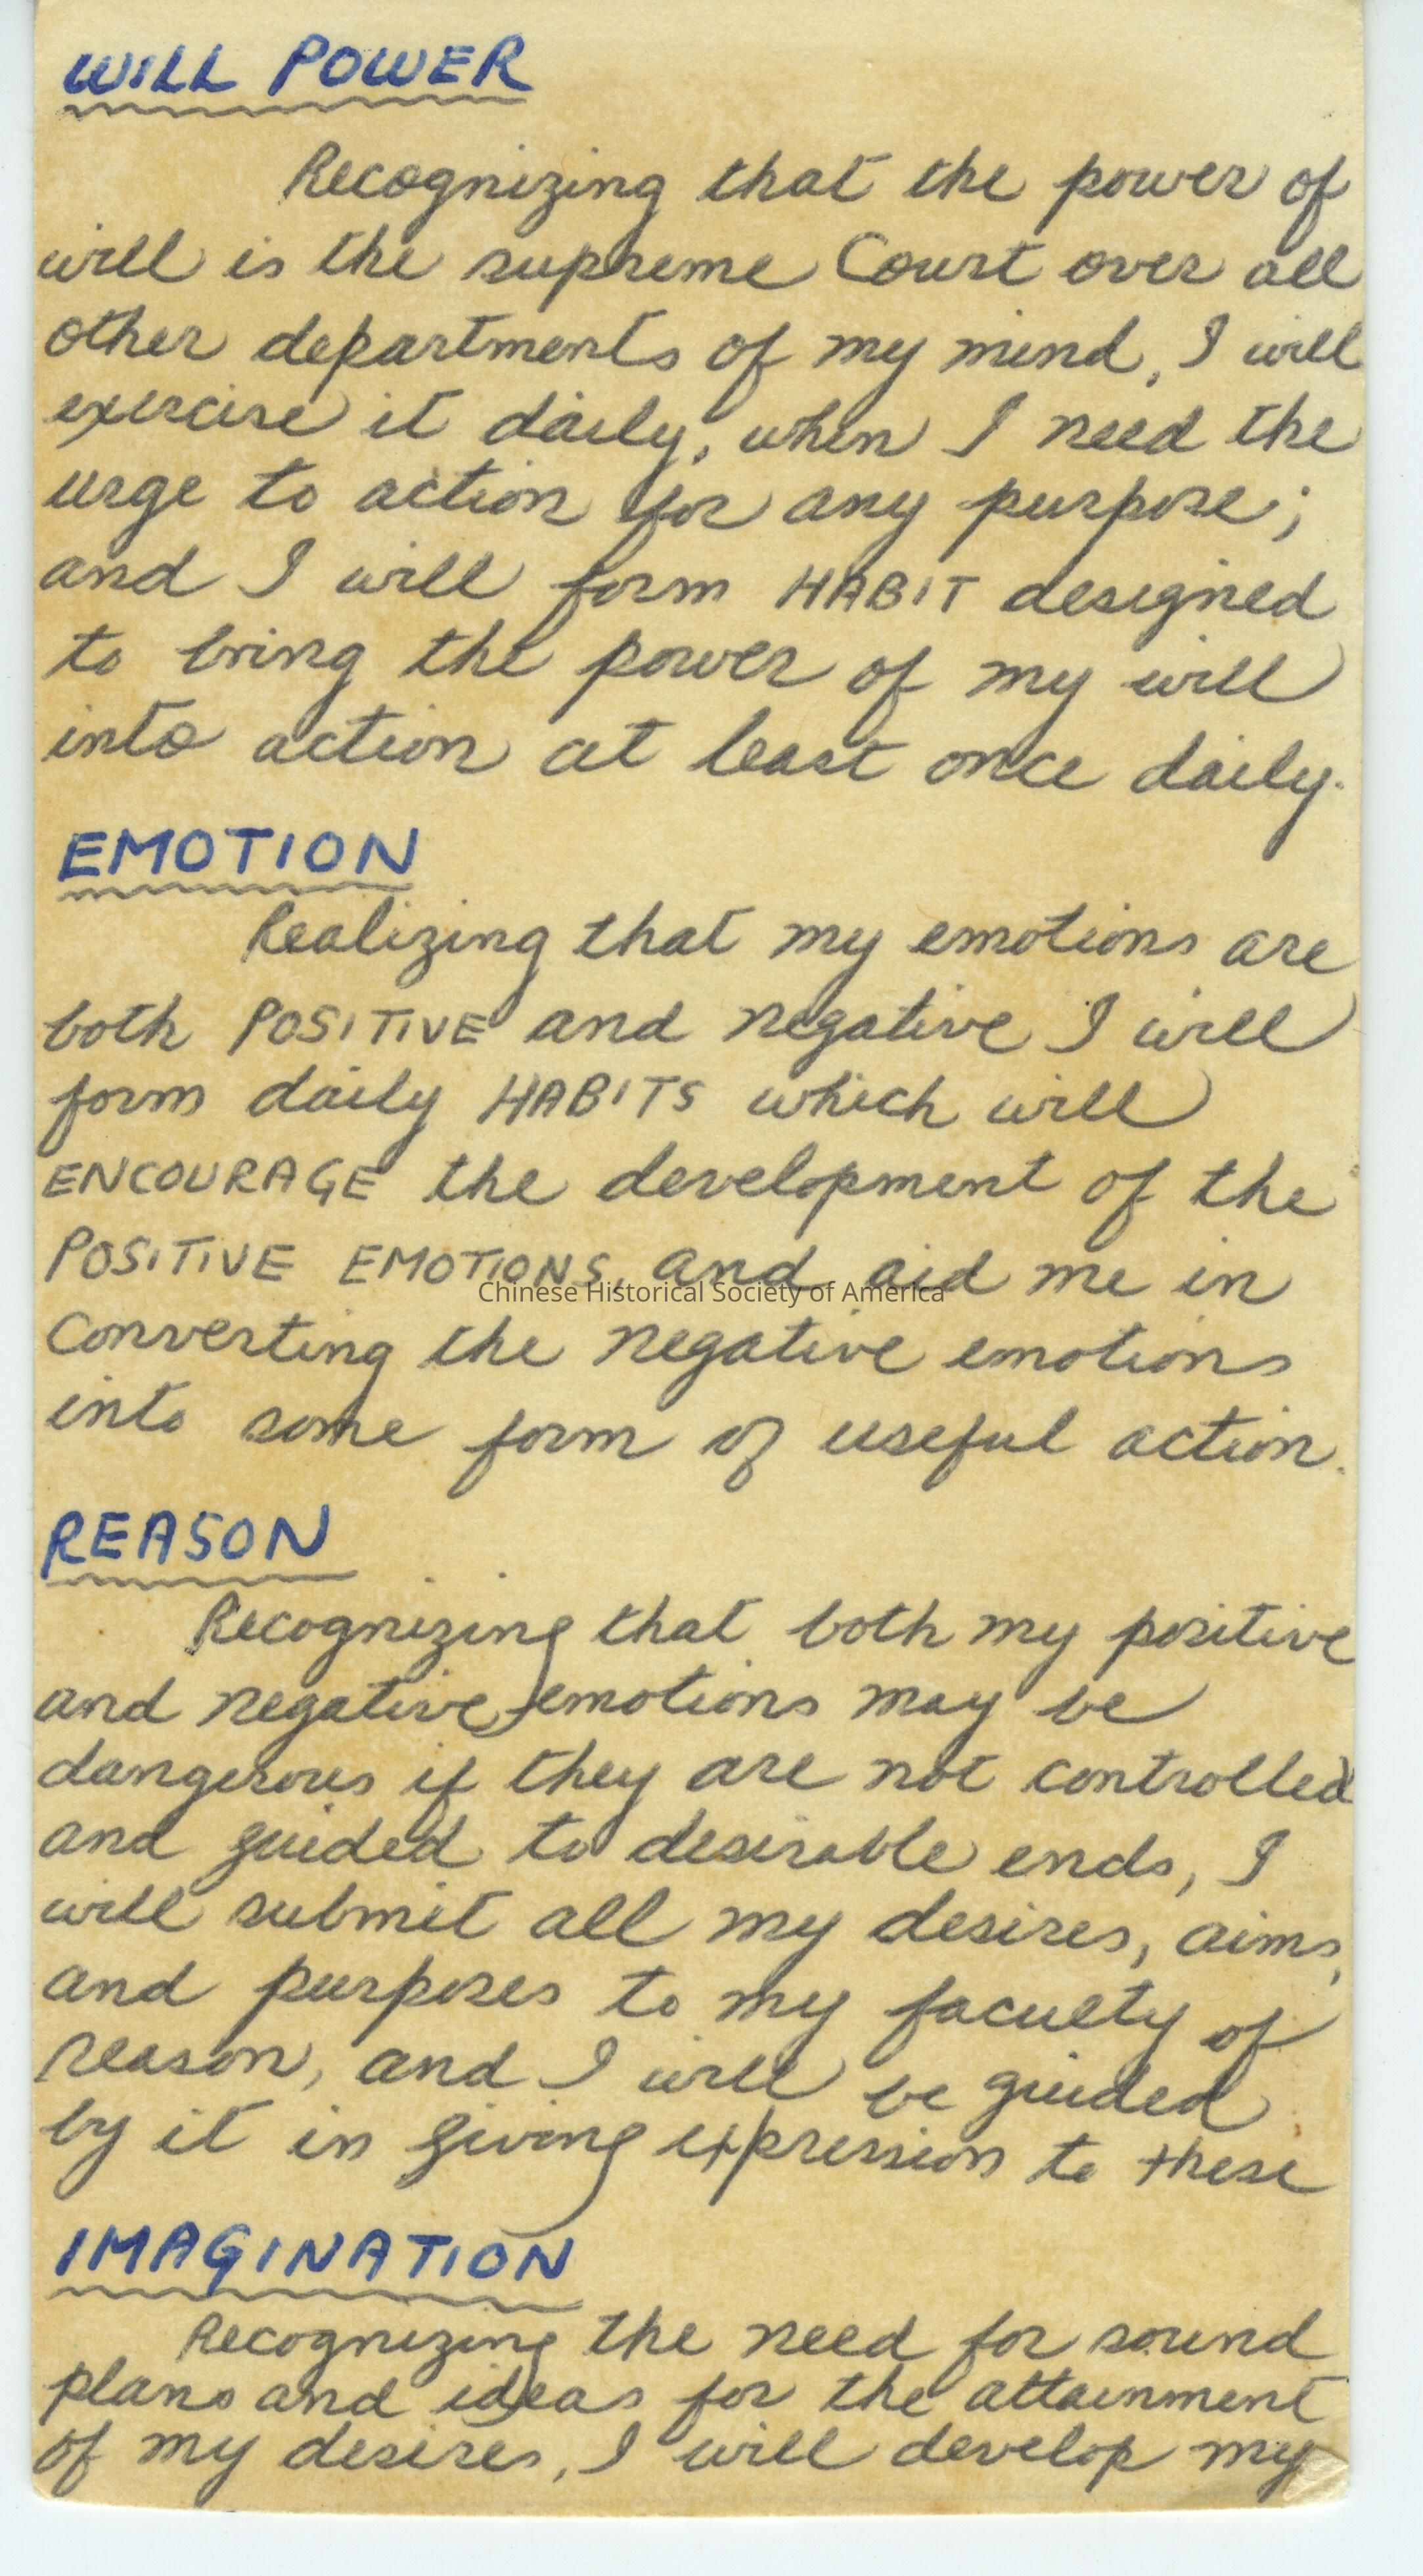 WILL POWER
Recognizing that the power of
will is the supreme Court over all
other departments of my mind, I will
exercise it daily, when I need the
urge to action for any purpose;
and I will form HABIT designed
to bring the power of my will
into action at least once daily.
EMOTION
Realizing that my emotions are
both POSITIVE and negative I will
form daily HABITS which will
ENCOURAGE the development of the
POSITIVE EMOTIONS, and aid me in
Chinese Historical Society of America
Converting the negative emotions
into some form of useful action.
REASON
Recognizing that both my positive
and negative emotions may be
dangerous if they are not controlled
and guided to desirable ends, I
will submit all my desires, aims,
and purposes to my faculty of
reason, and I will be guided
by it in giving expression to these
IMAGINATION
Recognizing the need for sound
plans and ideas for the attainment
of my desires, I will develop my